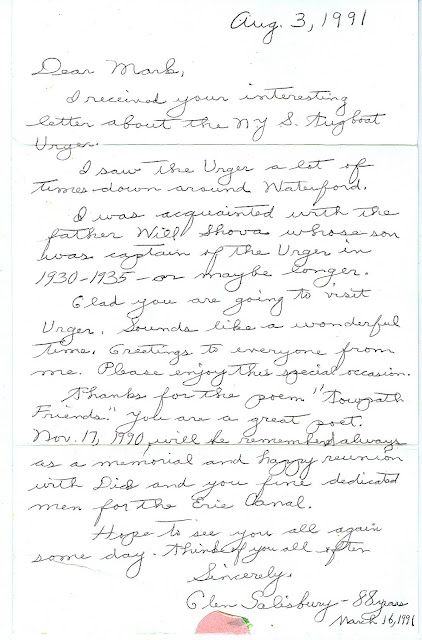 Aug. 3, 1991
Dear Mark,
I received your interesting
letter about the NY S. Tugboat
Urger.
I saw the Urger a lot of
times down around Waterford.
I was acquainted with the
father Will Shova whose son
was captain of the Urger in
1930-1935 - or maybe longer.
Glad you are going to visit
Urger. Sounds like a wonderful
time. Greetings to everyone from
me. Please enjoy this special occasion.
Thanks for the poem "Towpath
Friends." You are a great poet.
Nov. 17, 1990, will be remembered always
as a memorial and happy reunion
with Did and you fine dedicated
men for the Erie Canal.
Hope to see you all again
some day. Think of you all often
Sincerely,
Glen Salisbury - 88 years
March 16, 1991